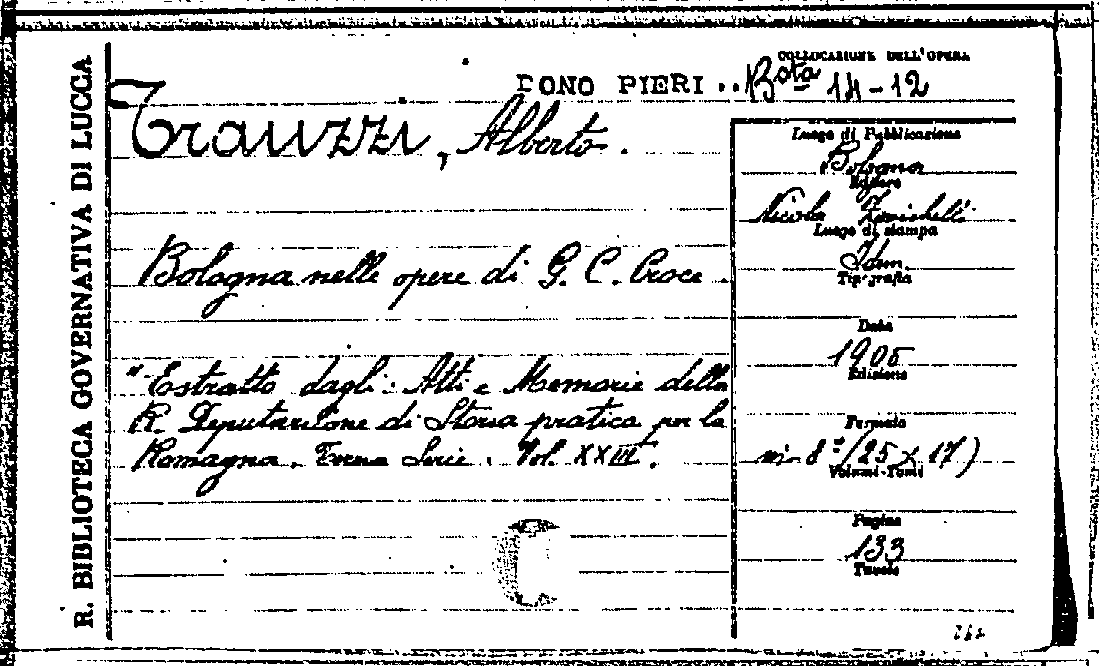 R. BIBLIOTECA GOVERNATIVA DI LUCCA
COLLOCAZIONE DELL'OPERA
DONO PIERI .. Bta 14-12
Trauzzi, Alberto.
Bologna nelle opere di G. C. Croce.
"Estratto dagli Atti e Memorie della
R. Deputazione di Storia pratica per la
Romagna. Terza Serie. Vol. XXIII.
Luogo di Pubblicazione
Bologna
Editore
Nicola Zanichelli
Luogo di stampa
Idem
Tipografia
Data
1905
Edizione
Formato
in-8°(25x17)
Volumi-Tomi
Pagine
133
Tavole